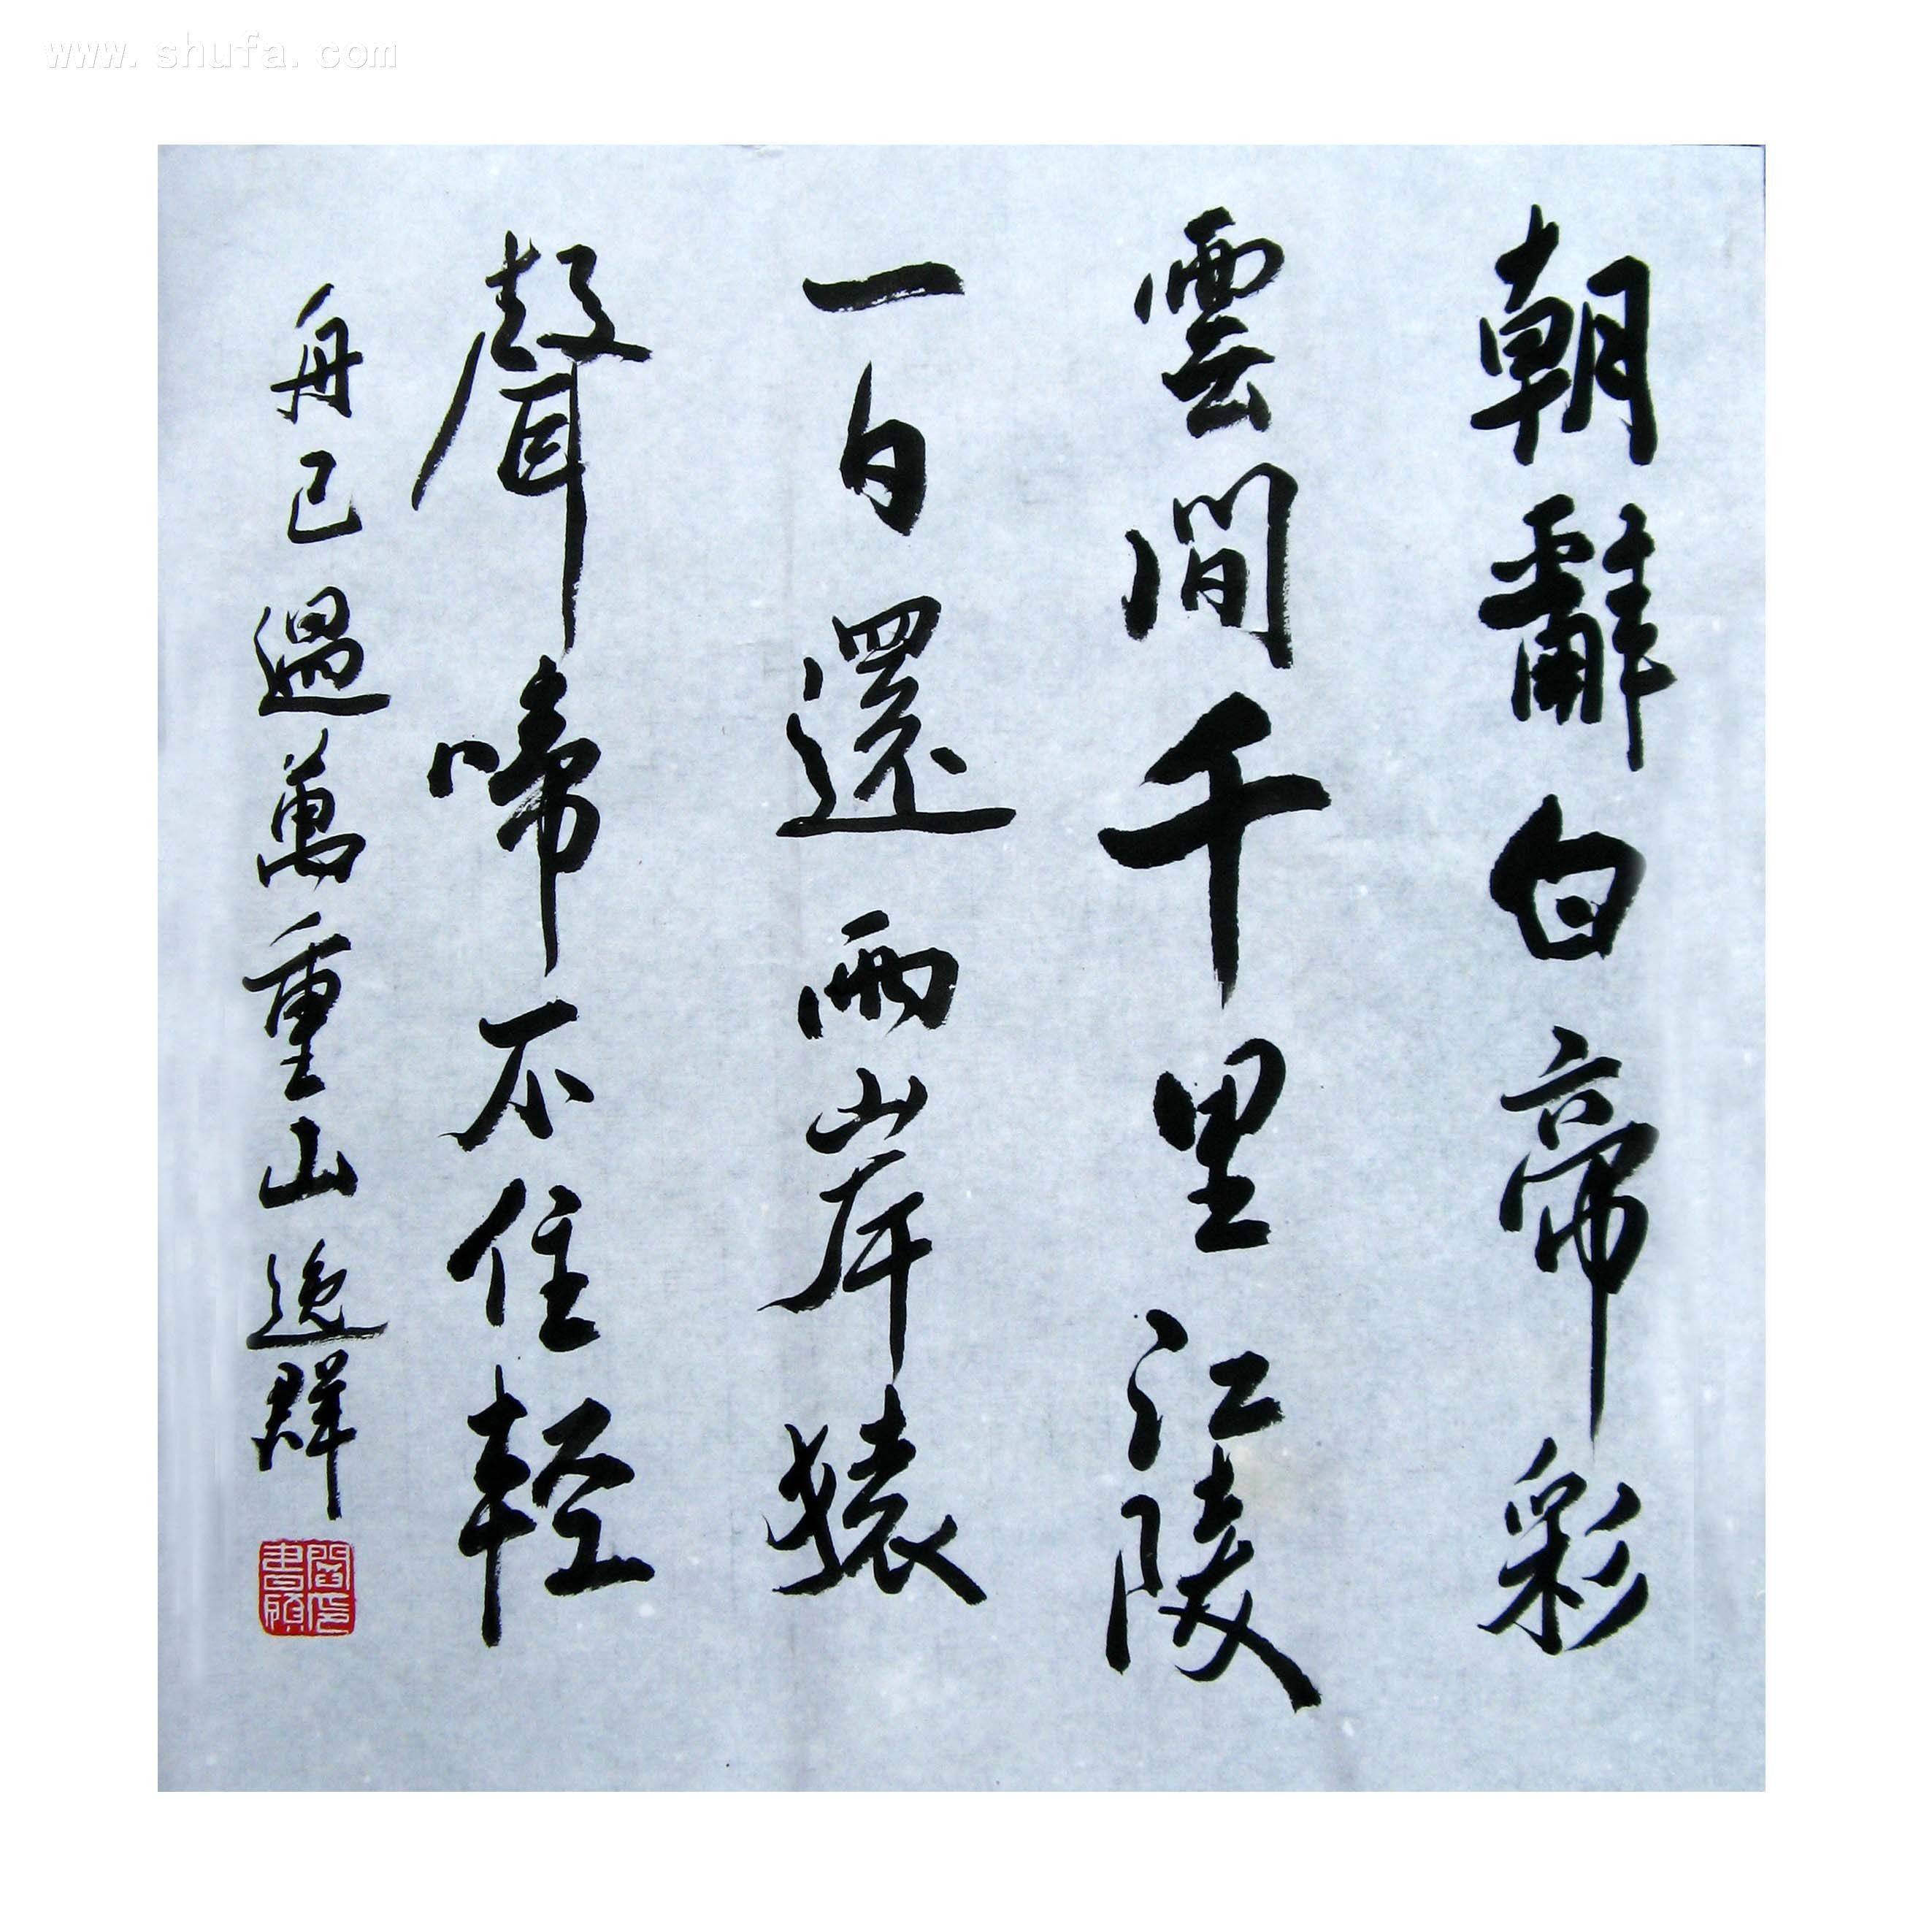 www.shufa.com
朝辭白帝彩
雲間千里江陵
一日還兩岸猿
聲啼不住輕
舟已過萬重山逸群